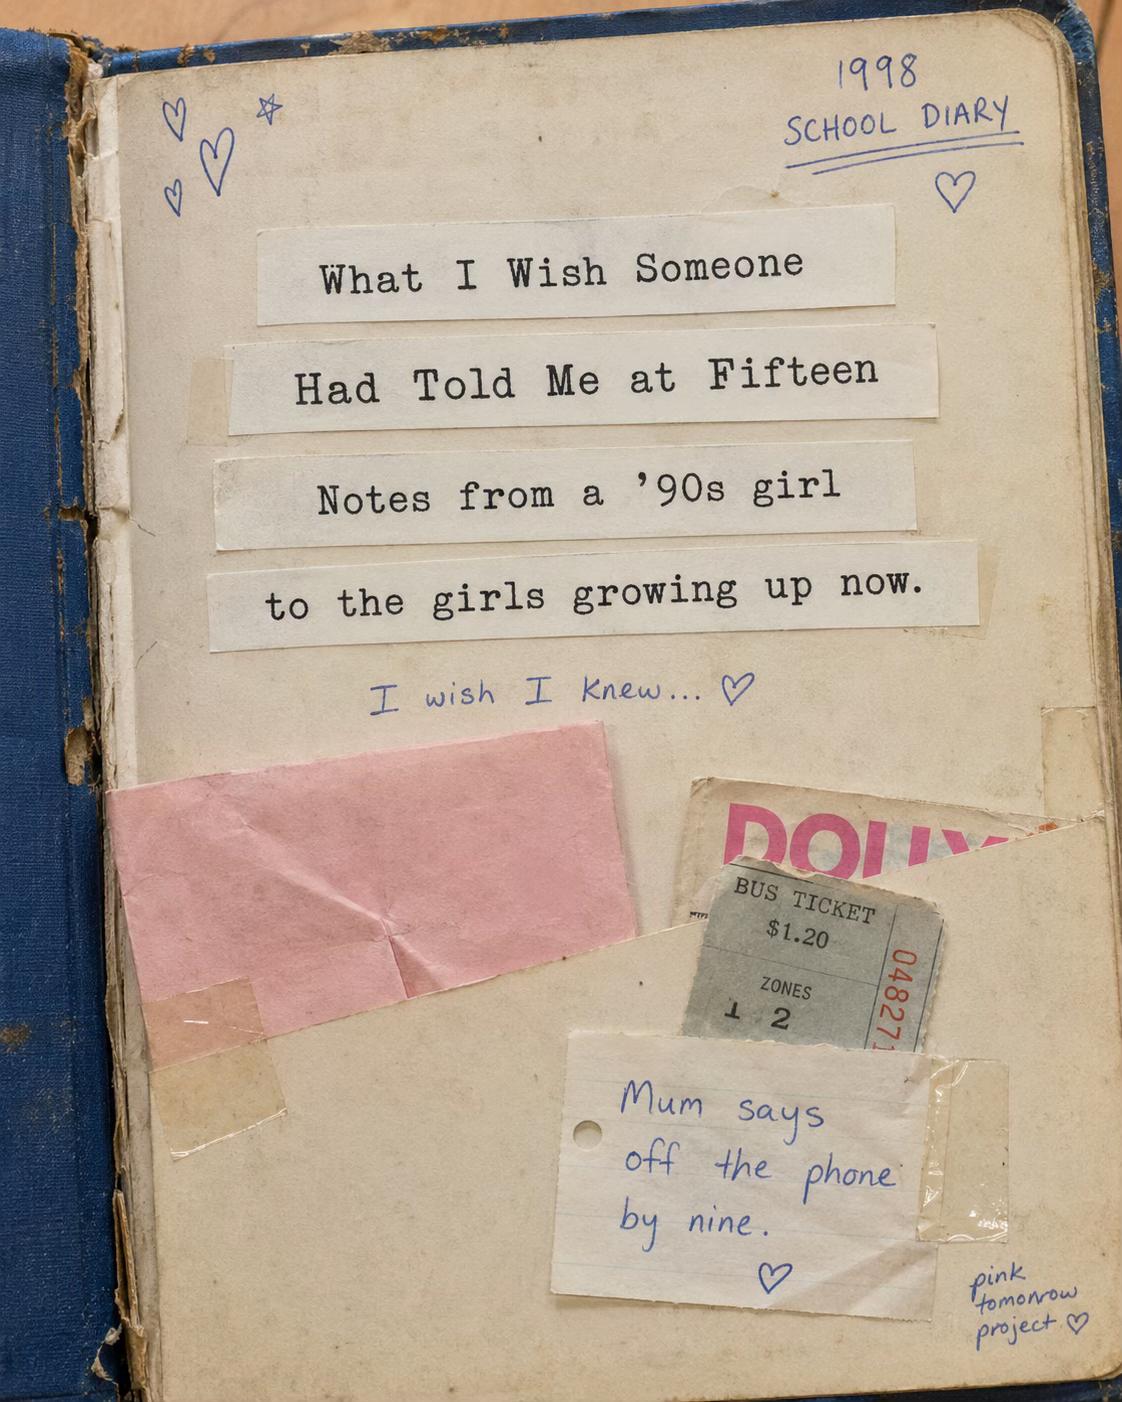 1998
SCHOOL DIARY
What I Wish Someone
Had Told Me at Fifteen
Notes from a '90s girl
to the girls growing up now.
I wish I knew...
DOLLY
BUS TICKET
$1.20
ZONES
1 2
04827
Mum says
off the phone
by nine.
pink
tomorrow
project